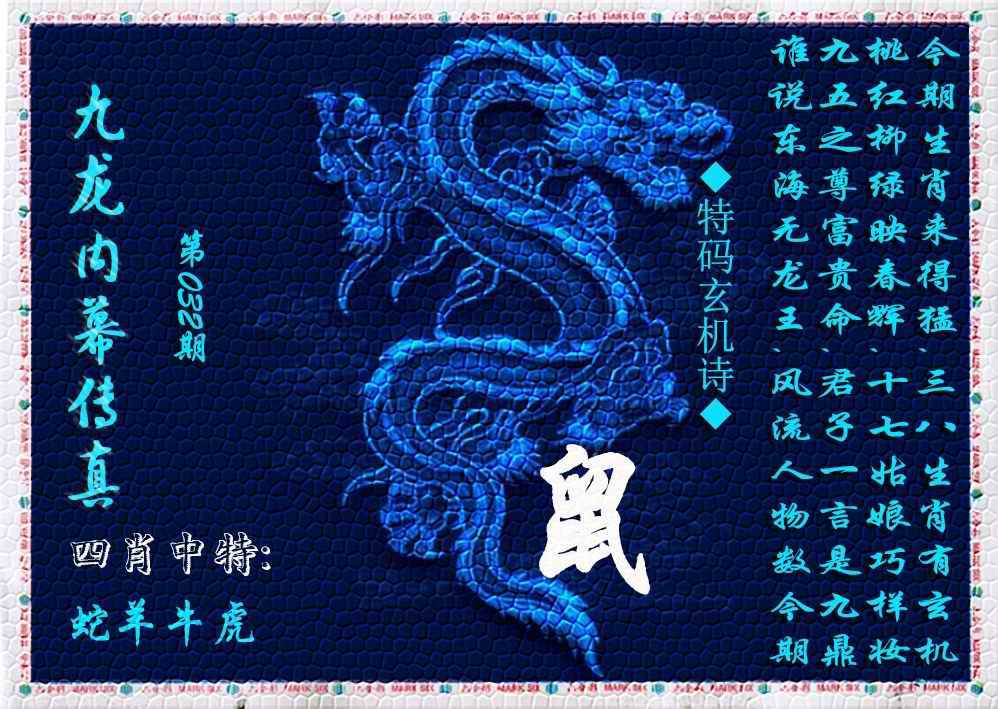 今期生肖来得猛、三八生肖有玄机
桃红柳绿映春辉、十七姑娘巧样妆
九五之尊富贵命、君子一言是九鼎
谁说东海无龙王、风流人物数今期
◆特码玄机诗◆
鼠
第032期
九龙内幕传真
四肖中特:
蛇羊牛虎